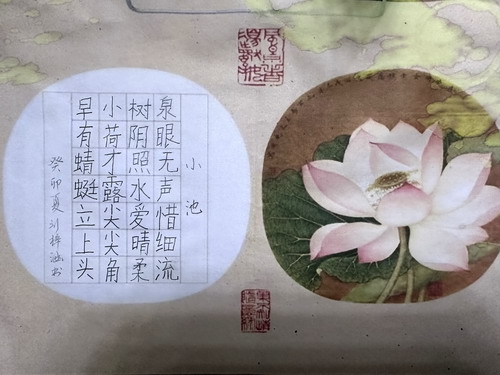 小池
泉眼无声惜细流
树阴照水爱晴柔
小荷才露尖尖角
早有蜻蜓立上头
癸卯夏刘梓涵书